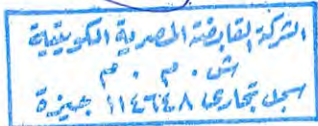 الشركة القابضة المصرية الكويتية
ش . م . م
سجل تجارى ١١٤٦٤٨ جيزة